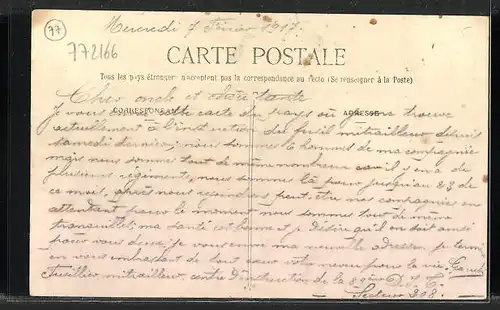 77
772166
Mercredi 7 Février 1917.
CARTE POSTALE
Tous les pays étrangers n'acceptent pas la correspondance au recto (Se renseigner à la Poste)
Cher oncle et chère tante
CORRESPONDANCE
ADRESSE
Je vous envoie cette carte du pays où je me trouve
actuellement à l'instruction du fusil mitrailleur depuis
samedi dernier; nous sommes hommes de ma compagnie
mais nous sommes tout de même nombreux car il y en a de
plusieurs régiments, nous sommes là pour jusqu'au 23 de
ce mois, après nous rejoindrons peut-être nos compagnies en
attendant pour le moment nous sommes tout de même
tranquilles; ma santé est bonne et je désire qu'il en soit ainsi
pour vous deux; je vous envoie ma nouvelle adresse. Je termine
en vous embrassant de tout cœur votre neveu pour la vie.
Fusilier mitrailleur centre d'instruction de la D. I.
Secteur 208.